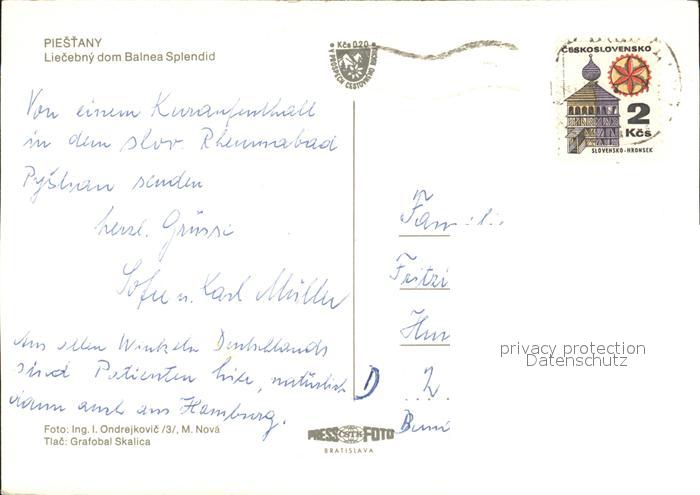 PIEŠŤANY
Liečebný dom Balnea Splendid
Kčs 0,20
V PROSPECH CESTOVNÉHO RUCHU
ČESKOSLOVENSKO
2
Kčs
SLOVENSKO-HRONSEK
Von einem Kuraufenthalt
in dem slov. Rheumabad
Pyštyan senden
herzl. Grüsse
Sofie u. Karl Müller
Aus allen Winkeln Deutschlands
sind Patienten hier, natürlich
dann auch aus Hamburg.
Familie
Fritzi
D
privacy protection
Datenschutz
Foto: Ing. I. Ondrejkovič /3/, M. Nová
Tlač: Grafobal Skalica
PRESS ČSTK FOTO
BRATISLAVA